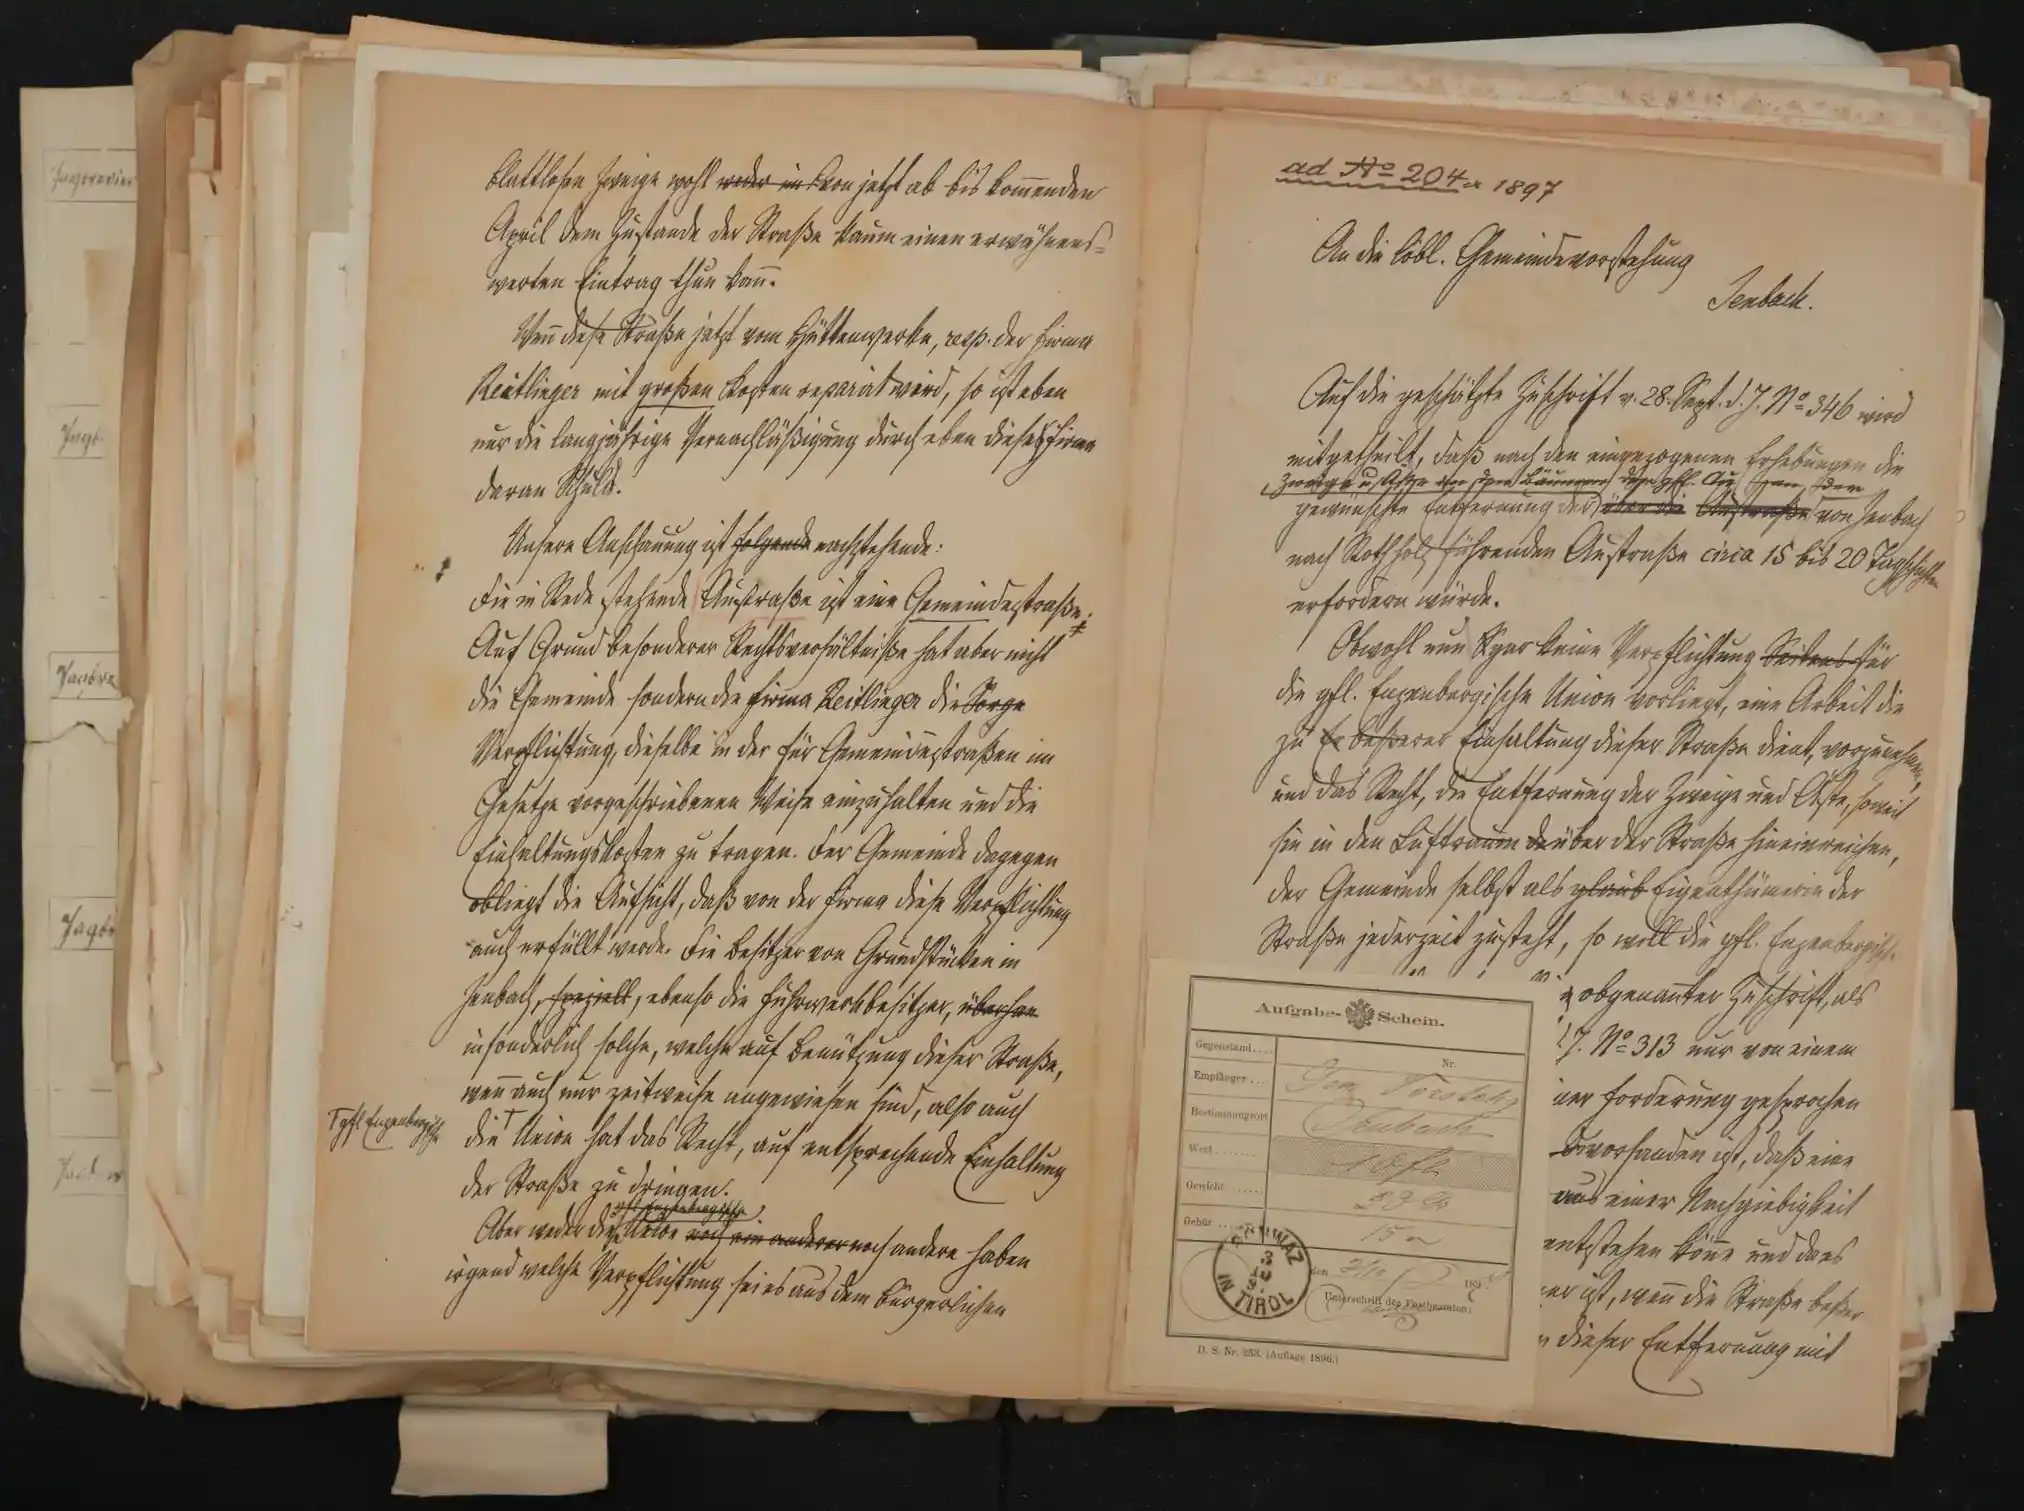 blattlosen Zweige wohl weder im von jetzt ab bis kommenden
April dem Zustande der Straße kaum einen erwähnens-
werten Eintrag thun kann.
Wenn diese Straße jetzt vom Hüttenwerke, resp. der Firma
Reitlinger mit großen Kosten reparirt wird, so ist eben
nur die langjährige Vernachläßigung durch eben diese Firma
daran Schuld.
Unsere Anschauung ist folgende nachstehende:
Die in Rede stehende Austraße ist eine Gemeindestraße.
Auf Grund besonderer Rechtsverhältniße hat aber nicht
die Gemeinde sondern die Firma Reitlinger die Sorge
Verpflichtung, dieselbe in der für Gemeindestraßen im
Gesetze vorgeschriebenen Weise einzuhalten und die
Einhaltungskosten zu tragen. Der Gemeinde dagegen
obliegt die Aufsicht, daß von der Firma diese Verpflichtung
auch erfüllt werde. Die Besitzer von Grundstücken in
Jenbach, speziell, ebenso die Fuhrwerkbesitzer, überhau
insonderlich solche, welche auf Benützung dieser Straße,
wenn auch nur zeitweise angewiesen sind, also auch
T gfl Enzenbergische
die T Union hat das Recht, auf entsprechende Einhaltung
der Straße zu dringen.
gfl Enzenbergische
Aber weder die Union noch ein anderer noch andere haben
irgend welche Verpflichtung sei es aus dem bürgerlichen
ad No 204 1897
An die löbl. Gemeindevorstehung
Jenbach.
Auf die geschätzte Zuschrift v. 28. Sept. d. J. No 346 wird
mitgetheilt, daß nach den eingezogenen Erhebungen die
Zweige u. Äste an den Bäumen der gfl. Au von der
gewünschte Entfernung der über die Austraße von Jenbach
nach Rothholz führenden Austraße circa 15 bis 20 Tagschichten
erfordern würde.
Obwohl nun gar keine Verpflichtung Seitens für
die gfl. Enzenbergische Union vorliegt, eine Arbeit die
zu beßerer Einhaltung dieser Straße dient, vorzunehmen,
und das Recht, die Entfernung der Zweige und Äste, soweit
sie in den Luftraum über der Straße hineinreichen,
der Gemeinde selbst als glaub Eigenthümerin der
Straße jederzeit zusteht, so will die gfl. Enzenbergische
obgenannter Zuschrift, als
J. No 313 nur von einem
iner Forderung gesprochen
vorhanden ist, daß eine
aus einer Nachgiebigkeit
entstehen könne und das
er ist, wenn die Straße beßer
dieser Entfernung mit
Aufgabe-Schein.
Gegenstand....
Nr.
Empfänger ...
Gem Vorstehg
Bestimmungsort
Jenbach
Wert.......
Gewicht......
Gebür.....
15
SCHWAZ
IN TIROL
den
189
Unterschrift des Postbeamten:
D. S. Nr. 253. (Auflage 1896.)
Jagdrevier
Jagd